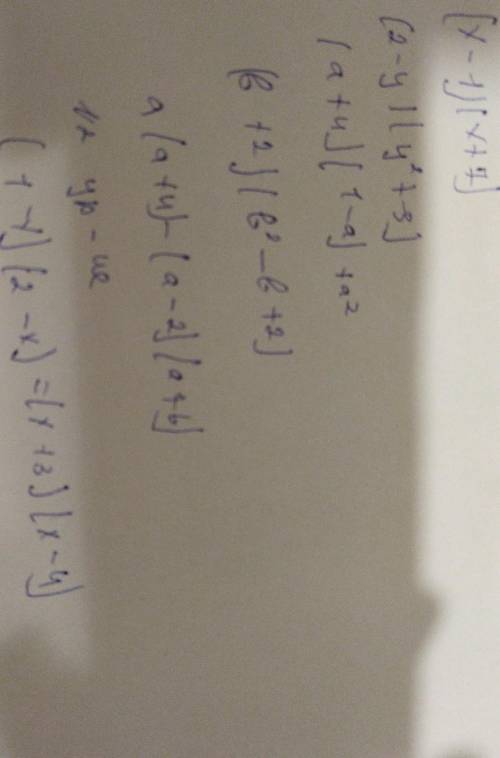 (x-1)(x+7)
(2-y)(y²+3)
(a+4)(1-a)+a²
(b+2)(b²-b+2)
a(a+4)-(a-2)(a+6)
ур-ие
(1-x)(2-x)=(x+3)(x-4)